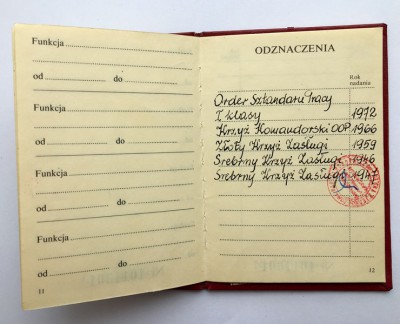 Funkcja
od do
Funkcja
od do
Funkcja
od do
Funkcja
od do
11
ODZNACZENIA
Rok
nadania
Order Sztandaru Pracy
I klasy 1972
Krzyż Komandorski OOP 1966
Złoty Krzyż Zasługi 1959
Srebrny Krzyż Zasługi 1946
Srebrny Krzyż Zasługi 1947
12